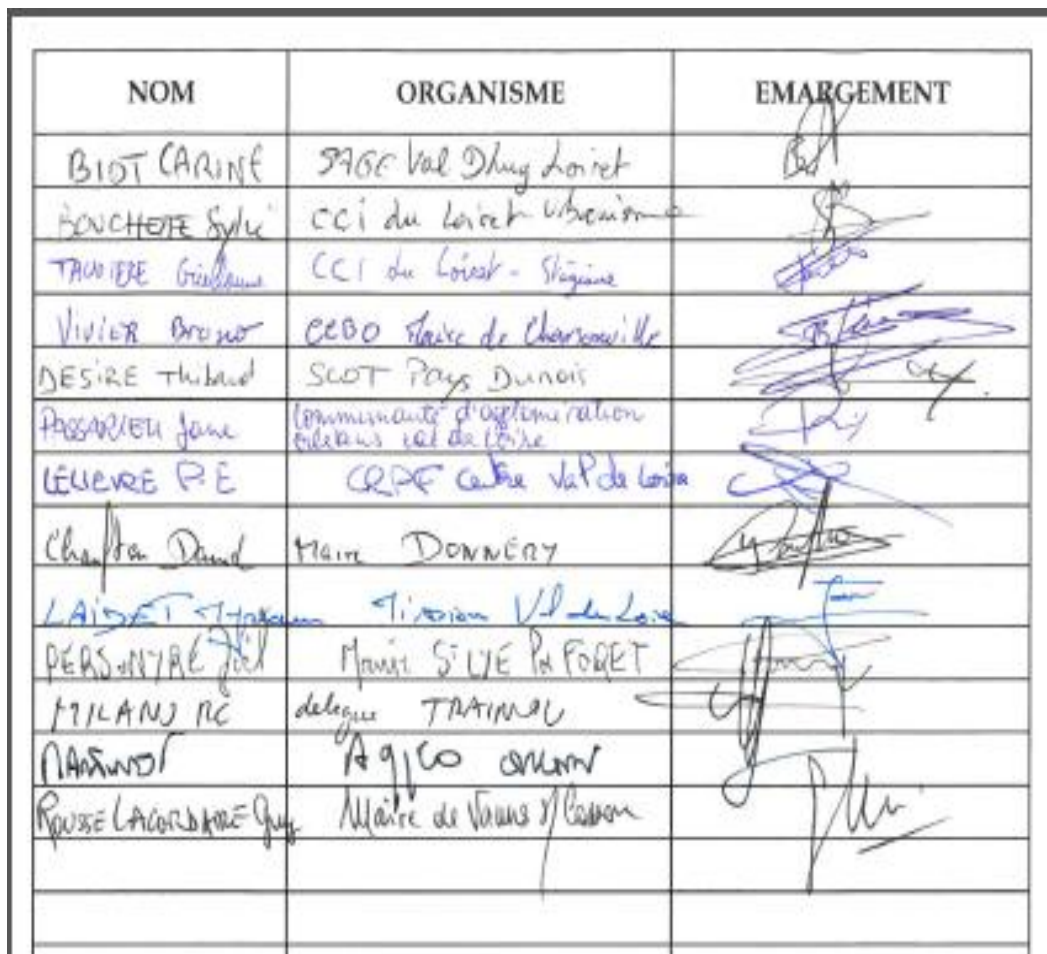 NOM ORGANISME EMARGEMENT
BIOT CARINE SAGE Val Dhuy Loiret
BOUCHETE Sylvie CCI du Loiret Urbanisme
TAUVIERE Guillaume CCI du Loiret - Stagiaire
VIVIER Bruno CCBO Maire de Charsonville
DESIRE Thibaud SCOT Pays Dunois
Jane Communauté d'agglomération
orléans val de loire
LELIEVRE P.E CRPF Centre Val de Loire
David Maire DONNERY
LAIDET Myriam Mission Val de Loire
Joël Mairie St LYE La FORET
MILANO délégué TRAINOU
ROUSSE LACORDAIRE Guy Maire de Vannes s/ Cosson